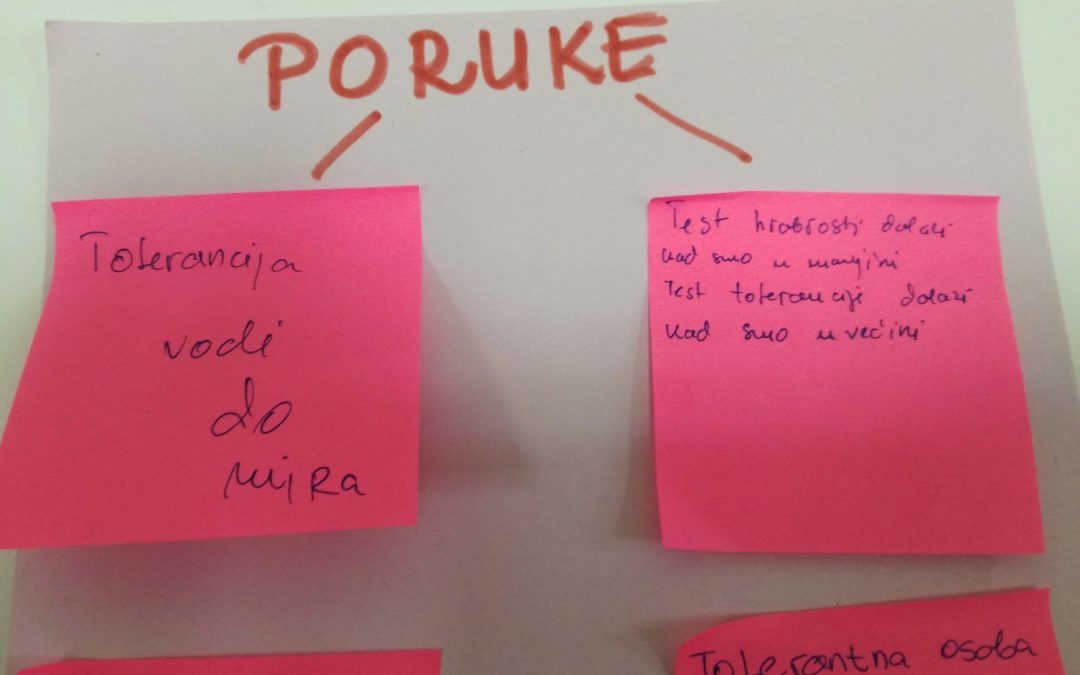 PORUKE
Tolerancija
vodi
do
mira
Test hrabrosti dolazi
kad smo u manjini
Test tolerancije dolazi
kad smo u većini
Tolerantna osoba